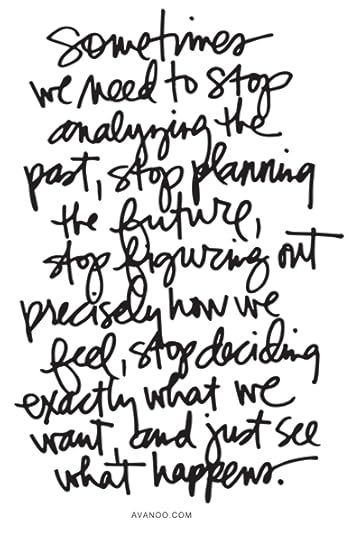 sometimes
we need to stop
analyzing the
past, stop planning
the future,
stop figuring out
precisely how we
feel, stop deciding
exactly what we
want, and just see
what happens.
AVANOO.COM